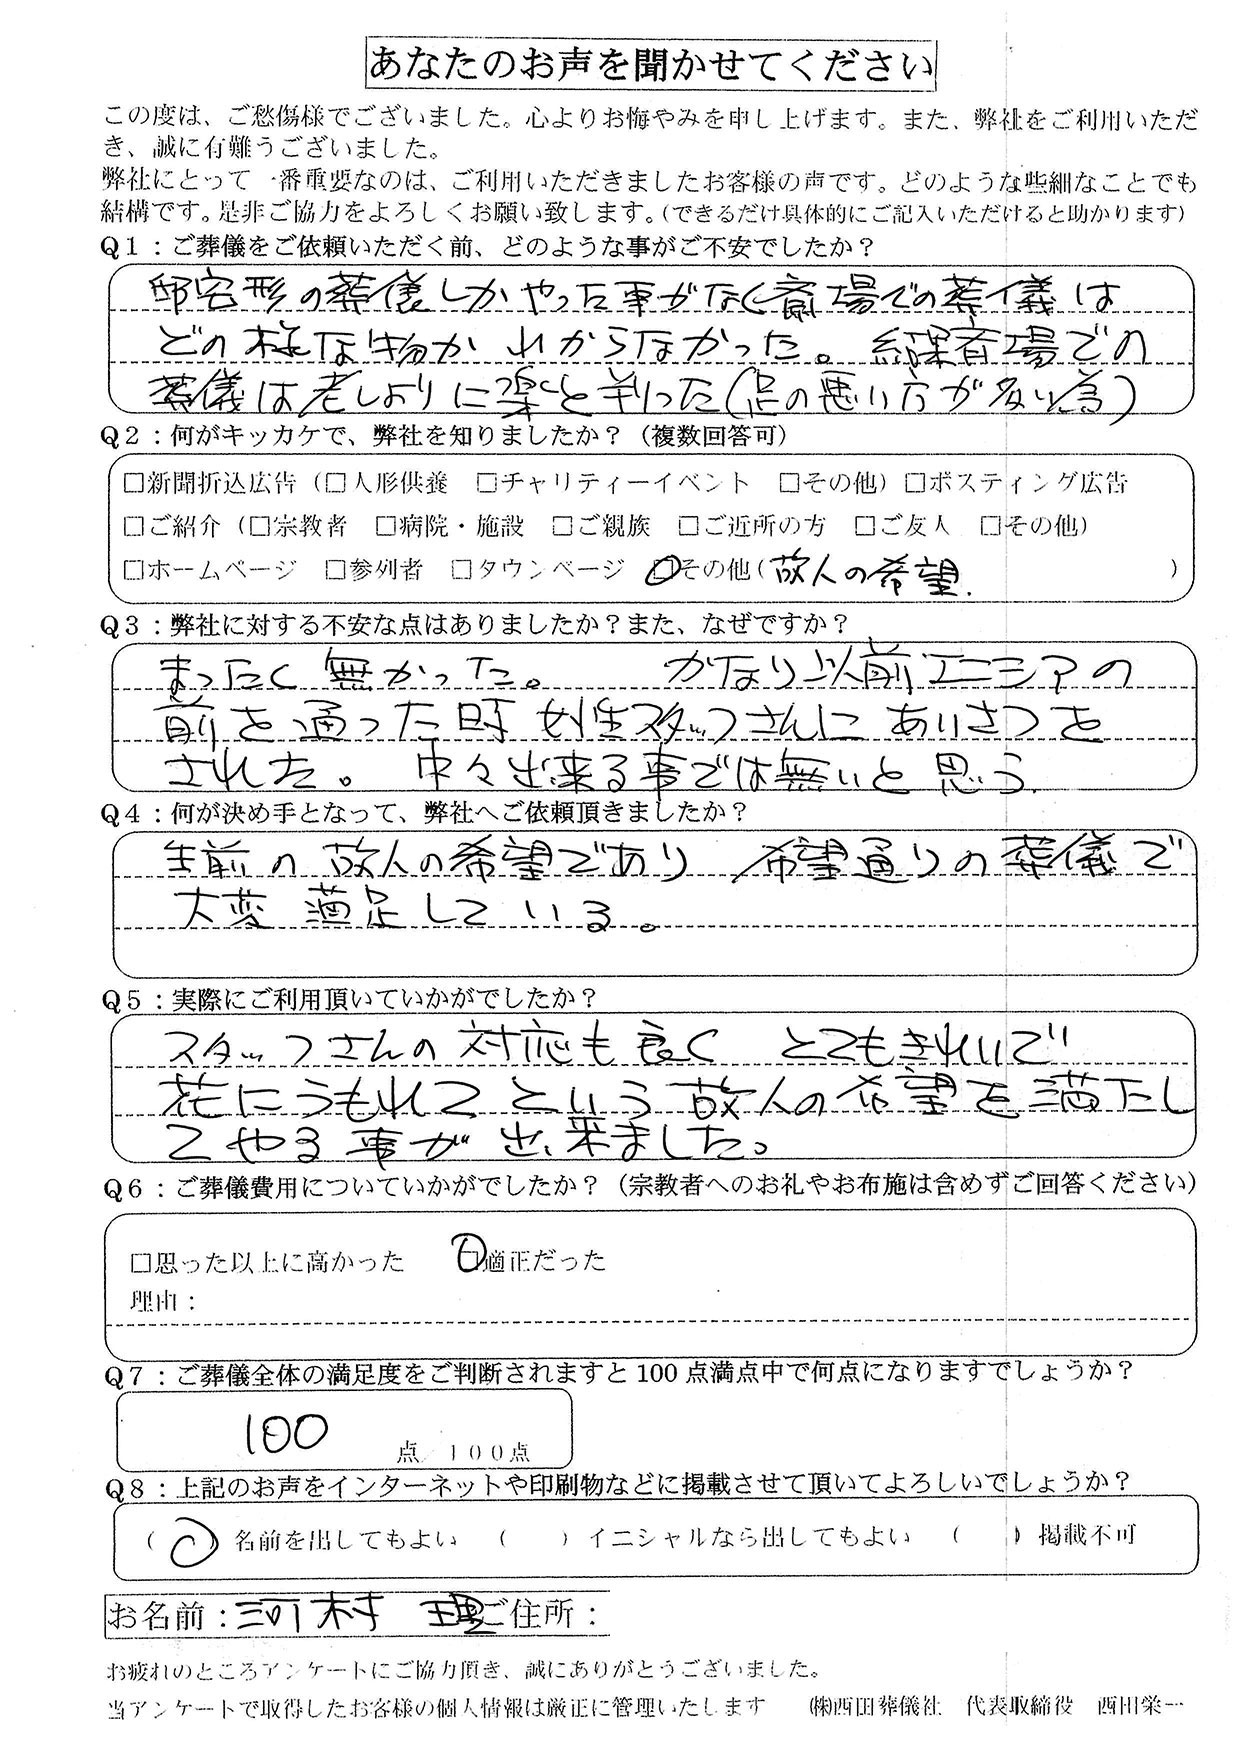 あなたのお声を聞かせてください
この度は、ご愁傷様でございました。心よりお悔やみを申し上げます。また、弊社をご利用いただ
き、誠に有難うございました。
弊社にとって一番重要なのは、ご利用いただきましたお客様の声です。どのような些細なことでも
結構です。是非ご協力をよろしくお願い致します。(できるだけ具体的にご記入いただけると助かります)
Q1：ご葬儀をご依頼いただく前、どのような事がご不安でしたか？
邸宅形の葬儀しかやった事がなく斎場での葬儀は
どの様な物か わからなかった。 結果斎場での
葬儀は 老しより に楽と判った(足の悪い方が多い為)
Q2：何がキッカケで、弊社を知りましたか？（複数回答可）
□新聞折込広告（□人形供養 □チャリティーイベント □その他）□ポスティング広告
□ご紹介（□宗教者 □病院・施設 □ご親族 □ご近所の方 □ご友人 □その他）
□ホームページ □参列者 □タウンページ □その他(故人の希望. )
Q3：弊社に対する不安な点はありましたか？また、なぜですか？
まったく無かった。 かなり以前エニシアの
前を通った時 女性スタッフさんに あいさつを
された。 中々出来る事では無いと思う.
Q4：何が決め手となって、弊社へご依頼頂きましたか？
生前の故人の希望であり 希望通りの葬儀で
大変 満足している。
Q5：実際にご利用頂いていかがでしたか？
スタッフさんの対応も良く とてもきれいで
花にうもれて という故人の希望を満たし
てやる事が出来ました。
Q6：ご葬儀費用についていかがでしたか？（宗教者へのお礼やお布施は含めずご回答ください）
□思った以上に高かった □適正だった
理由：
Q7：ご葬儀全体の満足度をご判断されますと100点満点中で何点になりますでしょうか？
100 点／100点
Q8：上記のお声をインターネットや印刷物などに掲載させて頂いてよろしいでしょうか？
（○）名前を出してもよい （ ）イニシャルなら出してもよい （ ）掲載不可
お名前：河村 理 ご住所：
お疲れのところアンケートにご協力頂き、誠にありがとうございました。
当アンケートで取得したお客様の個人情報は厳正に管理いたします ㈱西田葬儀社 代表取締役 西田栄一